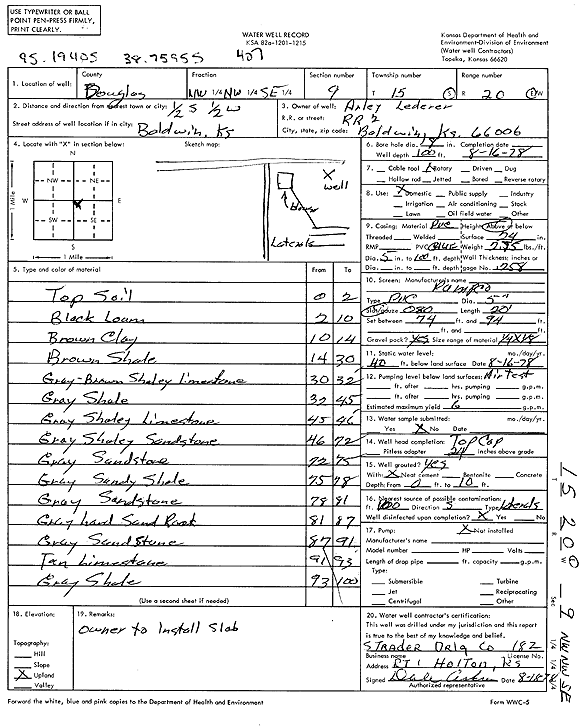 USE TYPEWRITER OR BALL
POINT PEN-PRESS FIRMLY,
PRINT CLEARLY.
WATER WELL RECORD
KSA 82a-1201-1215
Kansas Department of Health and
Environment-Division of Environment
(Water well Contractors)
Topeka, Kansas 66620
95.19405 38.75955 407
1. Location of well: County Douglas Fraction NW 1/4 NW 1/4 SE 1/4 Section number 9 Township number T 15 S Range number R 20 E/W
2. Distance and direction from nearest town or city: 1/2 S 1/2 W
Street address of well location if in city: Baldwin, Ks
3. Owner of well: Arley Lederer
R.R. or street: RR 2
City, state, zip code: Baldwin, Ks. 66006
4. Locate with "X" in section below:
Sketch map:
N
NW NE
W E
SW SE
S
1 Mile
1 Mile
X well
House
Laterals
6. Bore hole dia. 8 in. Completion date
Well depth 100 ft. 8-16-78
7. Cable tool X Rotary Driven Dug
Hollow rod Jetted Bored Reverse rotary
8. Use: X Domestic Public supply Industry
Irrigation Air conditioning Stock
Lawn Oil field water Other
9. Casing: Material PVC Height: Above or below
Threaded Welded Surface 24 in.
RMP PVC Weight lbs./ft.
Dia. 5 in. to 100 ft. depth Wall Thickness: inches or
Dia. in. to ft. depth gage No. .258
10. Screen: Manufacturer's name
Type PVC Dia. 5"
Slot/gauze .080 Length 20'
Set between 74 ft. and 94 ft.
ft. and ft.
Gravel pack? Yes Size range of material
11. Static water level: mo./day/yr.
40 ft. below land surface Date 8-16-78
12. Pumping level below land surfaces: Air test
ft. after hrs. pumping g.p.m.
ft. after hrs. pumping g.p.m.
Estimated maximum yield 6 g.p.m.
13. Water sample submitted: mo./day/yr.
Yes X No Date
14. Well head completion: Top Cap
Pitless adapter 24 inches above grade
15. Well grouted? Yes
With: X Neat cement Bentonite Concrete
Depth: From 0 ft. to 10 ft.
16. Nearest source of possible contamination:
ft. 100 Direction S Type Laterals
Well disinfected upon completion? X Yes No
17. Pump: X Not installed
Manufacturer's name
Model number HP Volts
Length of drop pipe ft. capacity g.p.m.
Type:
Submersible Turbine
Jet Reciprocating
Centrifugal Other
5. Type and color of material From To
Top Soil 0 2
Black Loam 2 10
Brown Clay 10 14
Brown Shale 14 30
Gray-Brown Shaley limestone 30 32
Gray Shale 32 45
Gray Shaley Limestone 45 46
Gray Shaley Sandstone 46 72
Gray Sandstone 72 75
Gray Sandy Shale 75 78
Gray Sandstone 78 81
Gray hard Sand Rock 81 87
Gray Sandstone 87 91
Tan Limestone 91 93
Gray Shale 93 100
(Use a second sheet if needed)
18. Elevation:
Topography:
Hill
Slope
X Upland
Valley
19. Remarks:
owner to Install Slab
20. Water well contractor's certification:
This well was drilled under my jurisdiction and this report
is true to the best of my knowledge and belief.
Strader Drlg Co 182
Business name License No.
Address RT 1 Holton, Ks
Signed Date 8-18-78
Authorized representative
Forward the white, blue and pink copies to the Department of Health and Environment
Form WWC-5
T 15 R 20 E/W Sec 9 1/4 1/4 1/4 NW NW SE